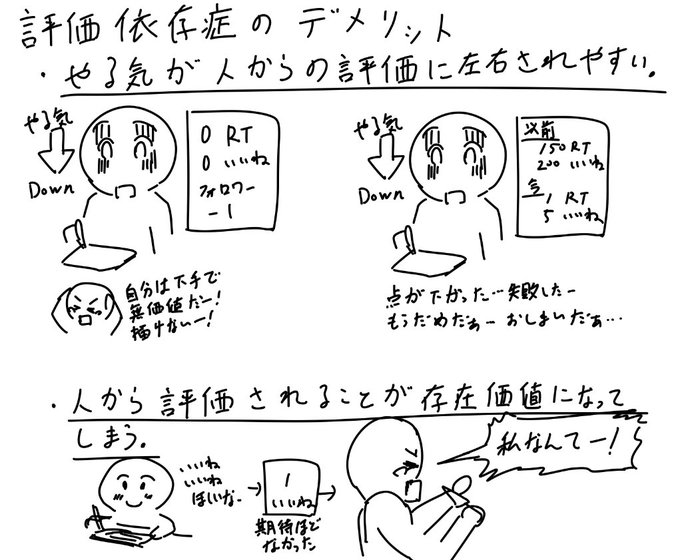 評価依存症のデメリット
・やる気が人からの評価に左右されやすい。
やる気
Down
0 RT
0 いいね
フォロワー
-1
自分は下手で
無価値だー!
描けないー!
やる気
Down
以前
150 RT
200 いいね
今
1 RT
5 いいね
点が下がった…失敗したー
もうだめだぁー おしまいだぁ…
・人から評価されることが存在価値になって
しまう。
いいね
いいね
ほしいなー
1
いいね
期待ほど
なかった
私なんてー!